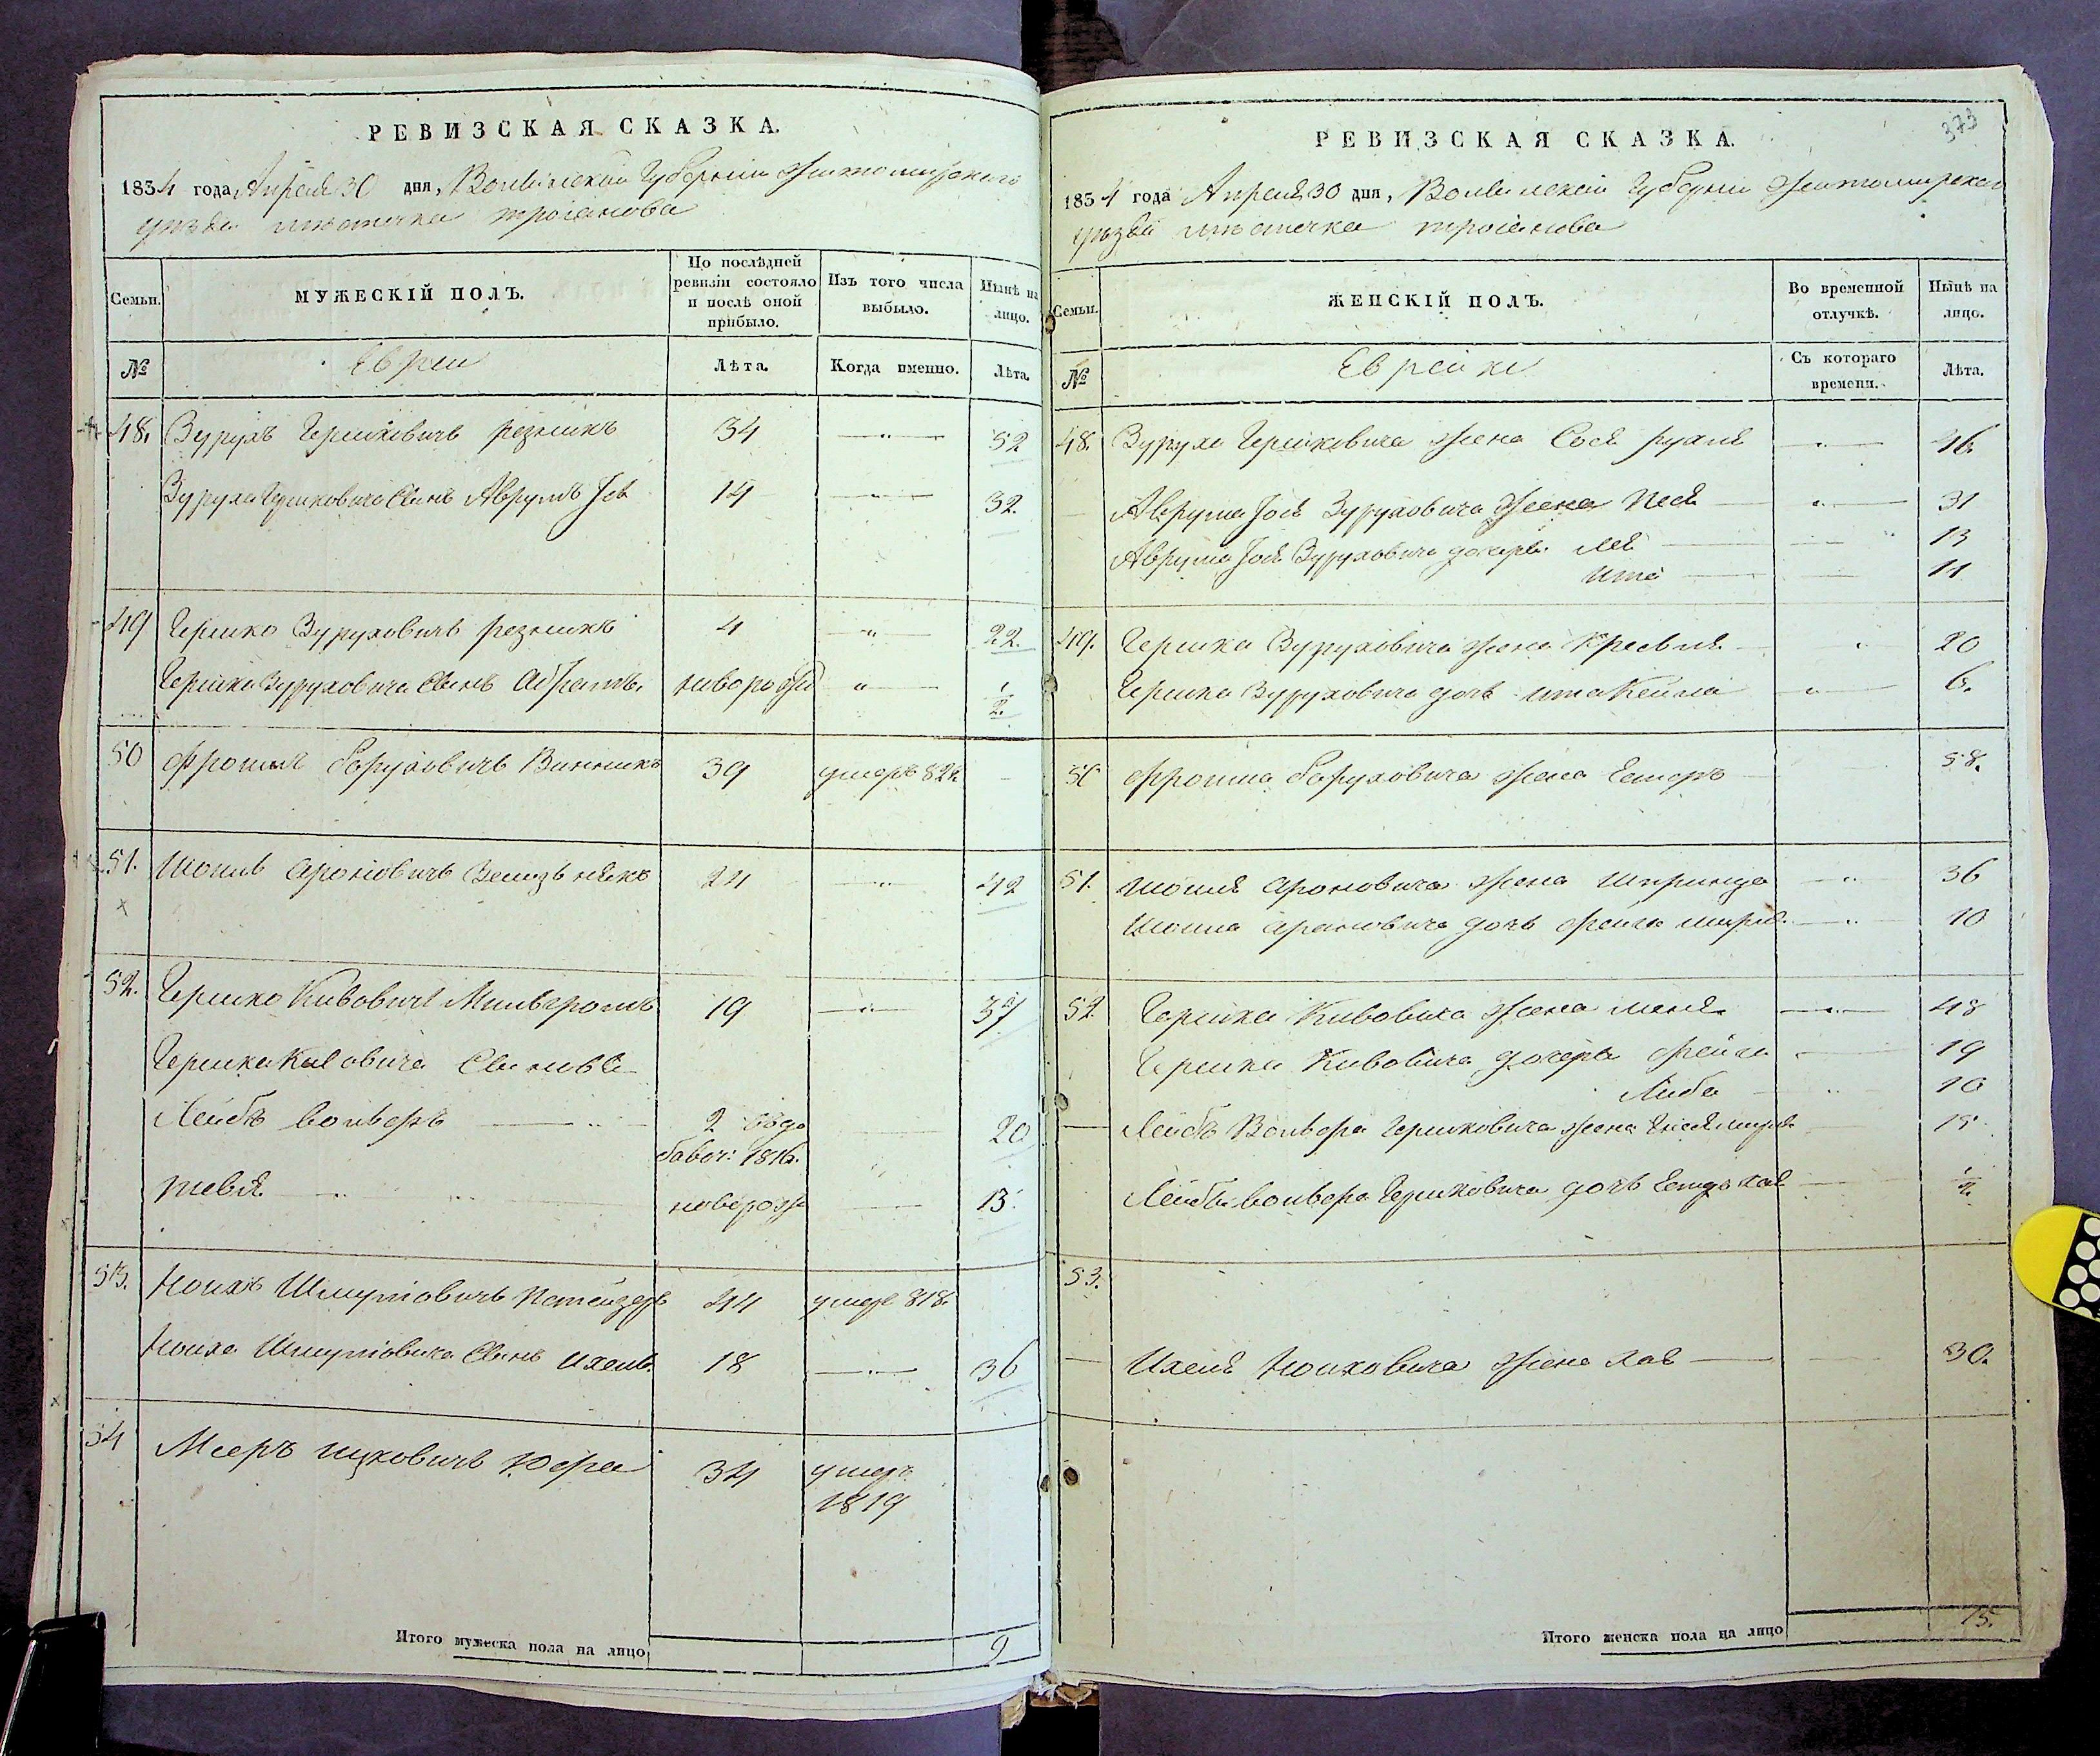 РЕВИЗСКАЯ СКАЗКА.
1834 года Апреля 30 дня, Волынской Губернии Житомирского
уезда местечка троянова
Семьи.
МУЖЕСКІЙ ПОЛЪ.
По послѣдней ревизіи состояло и послѣ оной прибыло.
Изъ того числа выбыло.
Нынѣ на лицо.
№
Евреи
Лѣта.
Когда именно.
Лѣта.
48. Зурухъ Гершковичъ резникъ 34 52
Зуруха Гершковича Сынъ Аврумъ Jос 14 32.
49 Гершко Зуруховичъ резникъ 4 22.
Гершка Зуруховича Сынъ Абрамъ. новорожд 1/2.
50 Фроимъ Боруховичъ Винникъ 39 умеръ 82
51. Шоилъ Ароновичъ 24 42
52. Гершко Кивовичъ Мильгромъ 19 37
Гершка Кивовича Сыновья
Лейбъ Вольверъ 2 20
1816.
тевя новорож 13.
53. Ноихъ Шмулювичъ 44 умеръ 818.
Ноиха Шмулювича Сынъ Ихель 18 36
54 Мееръ ицковичъ Юфа 34 умеръ
1819
Итого мужеска пола на лицо 9
373
РЕВИЗСКАЯ СКАЗКА.
1834 года Апреля 30 дня, Волынской Губерніи Житомирского
уезда местечка троянова
Семьи.
ЖЕНСКІЙ ПОЛЪ.
Во временной отлучкѣ.
Нынѣ на лицо.
№
Еврейки
Съ котораго времени.
Лѣта.
48. Зуруха Гершковича жена Сося рухля 46
Аврума Jося Зуруховича жена Песя 31
Аврума Jося Зуруховича дочери Лея 13
ита 11
49. Гершка Зуруховича жена 20
Гершка Зуруховича дочь ита Кейла 6.
50 Фроима Боруховича жена Естеръ 58.
51. Шоиля Ароновича жена Шпринца 36
Шоила Ароновича дочь фейга 10
52. Гершка Кивовича жена меня 48
Гершка Кивовича дочери фейга 19
Либа 10
Лейбъ Вольвера Гершковича жена 19
Лейбъ Вольвера Гершковича дочь хая 1/2.
53.
Ихеля Ноиховича жена хая 30.
Итого женска пола на лицо 15.